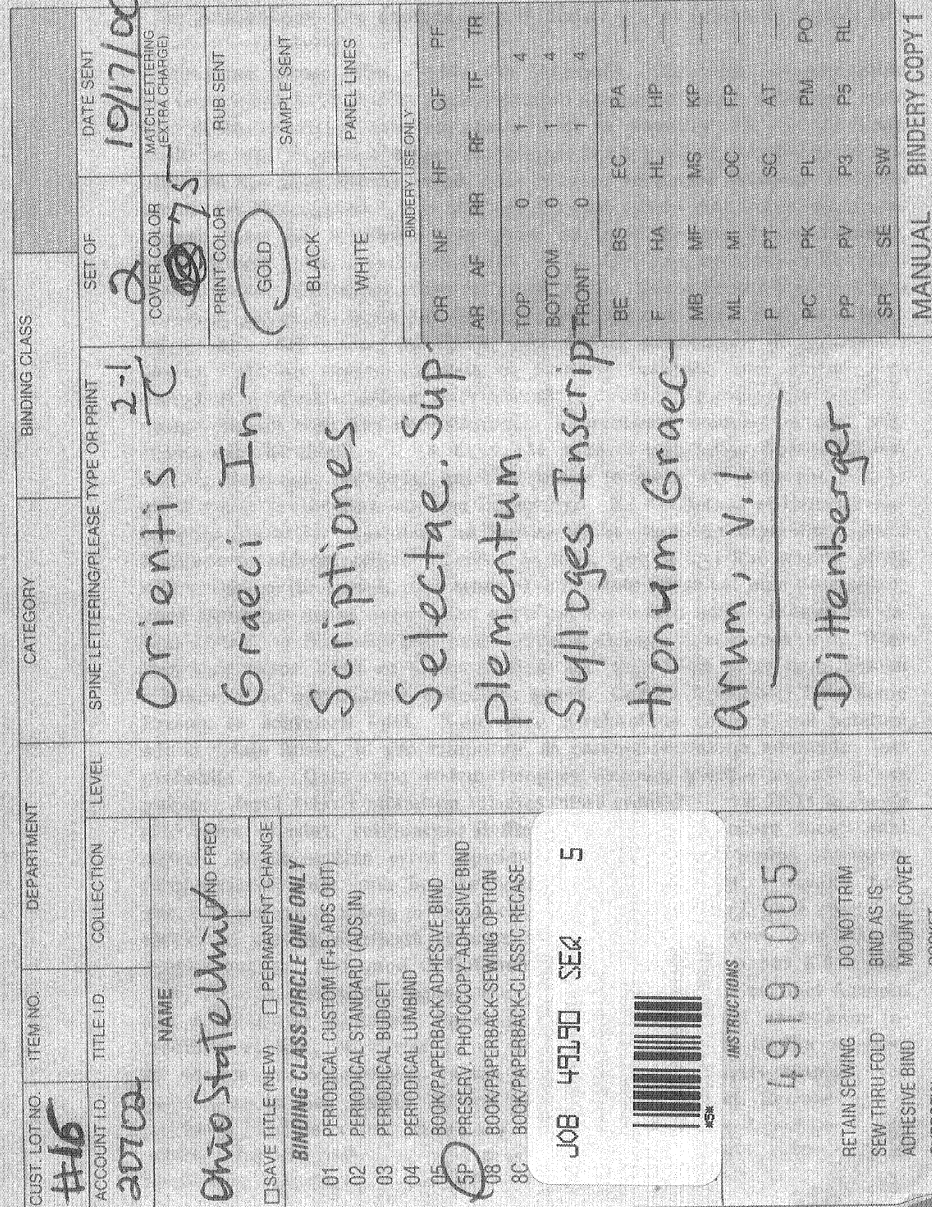 CUST. LOT NO. ITEM NO. DEPARTMENT CATEGORY BINDING CLASS
#15
ACCOUNT I.D. TITLE I.D. COLLECTION LEVEL
20702
NAME
Ohio State Univ
BIND FREQ
□ SAVE TITLE (NEW) □ PERMANENT CHANGE
BINDING CLASS CIRCLE ONE ONLY
01 PERIODICAL CUSTOM (F+B ADS OUT)
02 PERIODICAL STANDARD (ADS IN)
03 PERIODICAL BUDGET
04 PERIODICAL LUMBIND
05 BOOK/PAPERBACK ADHESIVE BIND
5P PRESERV. PHOTOCOPY-ADHESIVE BIND
08 BOOK/PAPERBACK-SEWING OPTION
8C BOOK/PAPERBACK-CLASSIC RECASE
JOB 49190 SEQ 5
*5*
INSTRUCTIONS
4919 005
RETAIN SEWING DO NOT TRIM
SEW THRU FOLD BIND AS IS
ADHESIVE BIND MOUNT COVER
POCKET
SPINE LETTERING/PLEASE TYPE OR PRINT
2-1
C
Orientis
Graeci In-
Scriptiones
Selectae. Sup-
plementum
Sylloges Inscrip
tionum Graec-
arum, v.1
Dittenberger
SET OF
2
DATE SENT
10/17/00
COVER COLOR
75
MATCH LETTERING
(EXTRA CHARGE)
PRINT COLOR
RUB SENT
GOLD
SAMPLE SENT
BLACK
PANEL LINES
WHITE
BINDERY USE ONLY
OR NF HF CF PF
AR AF RR RF TF TR
TOP 0 1 4
BOTTOM 0 1 4
FRONT 0 1 4
BE BS EC PA
F HA HL HP
MB MF MS KP
ML MI OC FP
P PT SC AT
PC PK PL PM PO
PP PV P3 P5 RL
SR SE SW
MANUAL BINDERY COPY 1